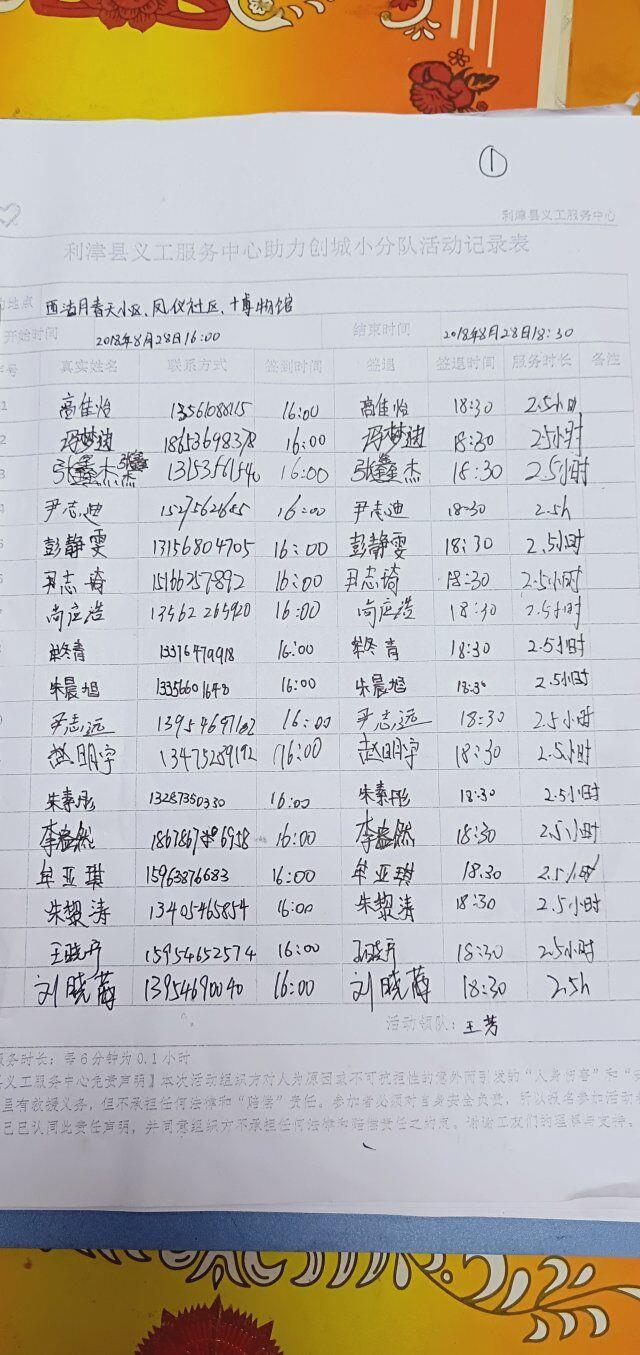 ①
利津县义工服务中心
利津县义工服务中心助力创城小分队活动记录表
地点 月青天小区、凤仪社区、博物馆
开始时间 2018年8月28日16:00 结束时间 2018年8月28日18:30
号 真实姓名 联系方式 签到时间 签退 签退时间 服务时长 备注
高佳怡 13561088115 16:00 高佳怡 18:30 2.5小时
冯梦迪 18653698378 16:00 冯梦迪 18:30 2.5小时
3 张鑫杰 13153561540 16:00 张鑫杰 18:30 2.5小时
尹志迪 16:00 尹志迪 18:30 2.5h
彭静雯 13156804705 16:00 彭静雯 18:30 2.5小时
尹志琦 15166257892 16:00 尹志琦 18:30 2.5小时
尚应浩 13562265920 16:00 尚应浩 18:30 2.5小时
青 13376479918 16:00 青 18:30 2.5小时
朱晨旭 13356601648 16:00 朱晨旭 18:30 2.5小时
尹志远 13954697162 16:00 尹志远 18:30 2.5小时
赵明宇 13475289192 16:00 赵明宇 18:30 2.5小时
朱素彤 13287350330 16:00 朱素彤 18:30 2.5小时
李益然 16:00 李益然 18:30 2.5小时
牟亚琪 15963876683 16:00 牟亚琪 18.30 2.5小时
朱黎涛 13405465854 16:00 朱黎涛 18:30 2.5小时
王晓卉 15954652574 16:00 18:30 2.5小时
刘晓薇 13954690040 16:00 刘晓薇 18:30 2.5h
活动领队：王芳
服务时长：每6分钟为0.1小时
义工服务中心免责声明】本次活动组织方对人为原因或不可抗拒性的意外而引发的“人身伤害”和“
里有救援义务，但不承担任何法律和“赔偿”责任。参加者必须对自身安全负责，所以报名参加活动
己已认同此责任声明，并同意组织方不承担任何法律和赔偿责任之约束。谢谢工友们的理事与支持。